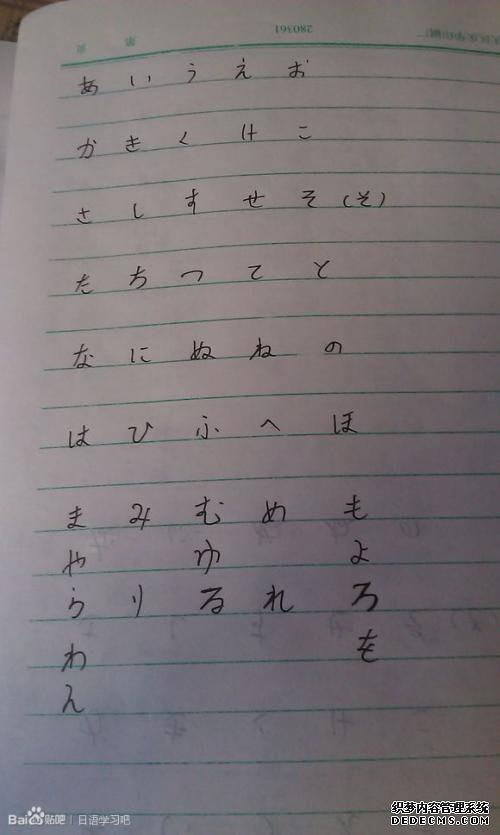 280361
あ い う え お
か き く け こ
さ し す せ そ (そ)
た ち つ て と
な に ぬ ね の
は ひ ふ へ ほ
ま み む め も
や ゆ よ
ら り る れ ろ
わ を
ん
Bai du 贴吧 | 日语学习吧
织梦内容管理系统
DEDECMS.COM